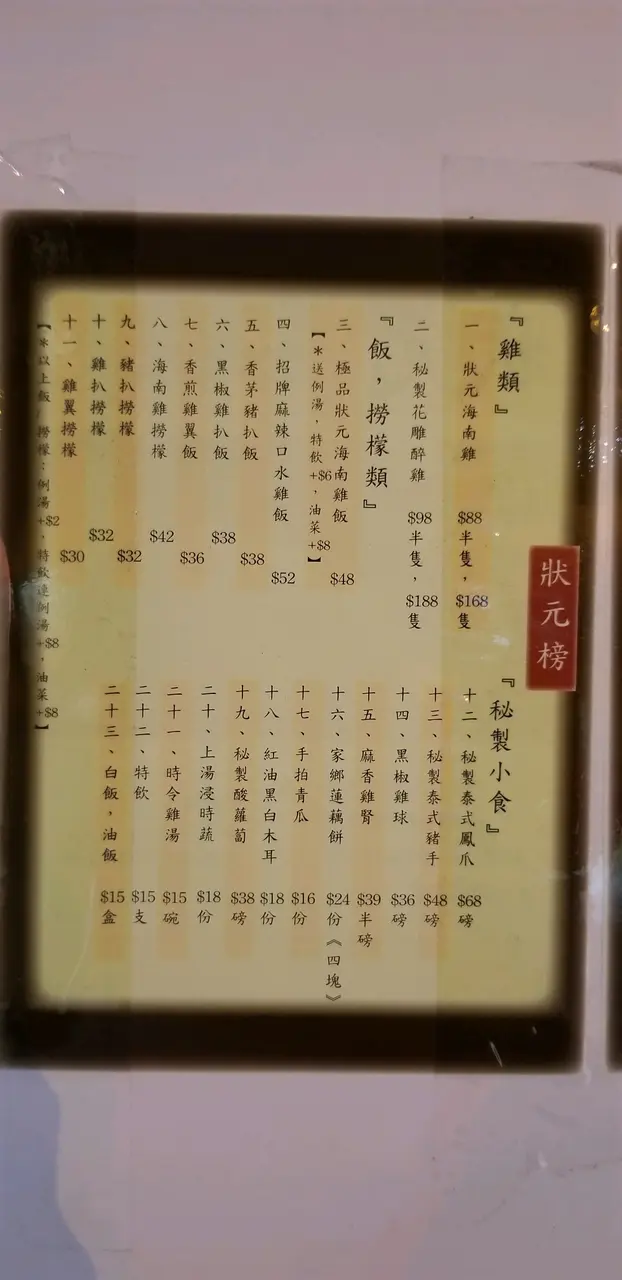 狀元榜
『雞類』
一、狀元海南雞 $88半隻，$168隻
二、秘製花雕醉雞 $98半隻，$188隻
『飯，撈檬類』
三、極品狀元海南雞飯 $48
【＊送例湯，特飲+$6，油菜+$8】
四、招牌麻辣口水雞飯 $52
五、香茅豬扒飯 $38
六、黑椒雞扒飯 $38
七、香煎雞翼飯 $36
八、海南雞撈檬 $42
九、豬扒撈檬 $32
十、雞扒撈檬 $32
十一、雞翼撈檬 $30
【＊以上飯/撈檬：例湯+$2，特飲連例湯+$8，油菜+$8】
『秘製小食』
十二、秘製泰式鳳爪 $68磅
十三、秘製泰式豬手 $48磅
十四、黑椒雞球 $36磅
十五、麻香雞腎 $39半磅
十六、家鄉蓮藕餅 $24份《四塊》
十七、手拍青瓜 $16份
十八、紅油黑白木耳 $18份
十九、秘製酸蘿蔔 $38磅
二十、上湯浸時蔬 $18份
二十一、時令雞湯 $15碗
二十二、特飲 $15支
二十三、白飯，油飯 $15盒